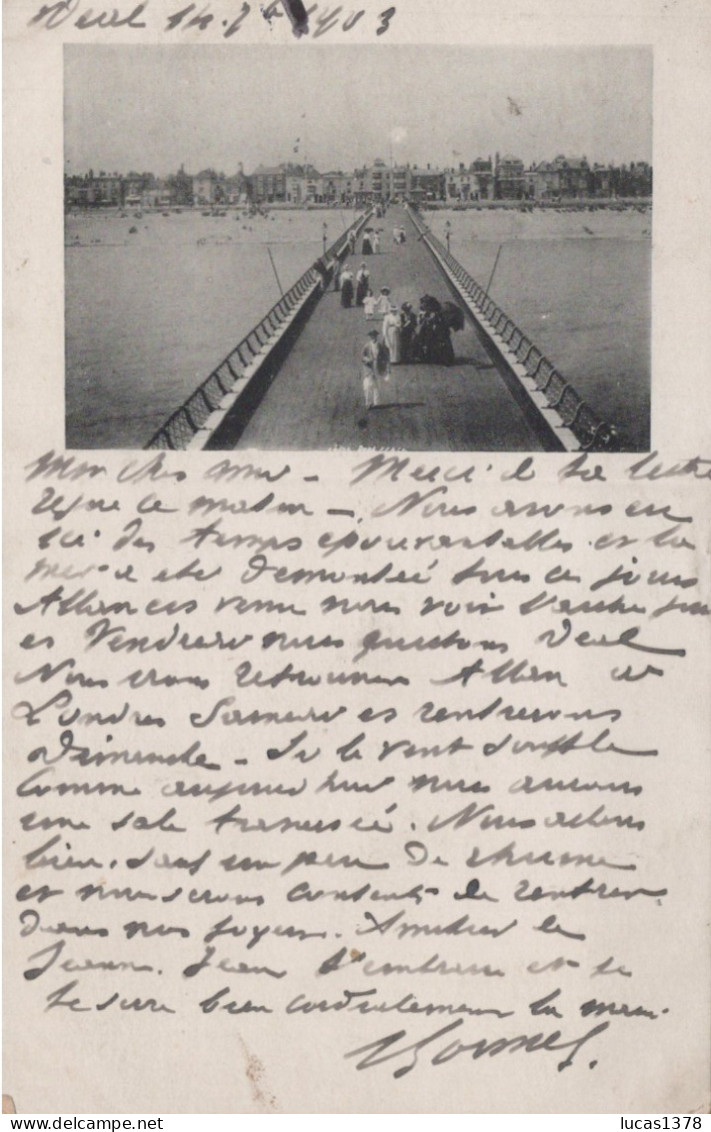 Deal 14. 7bre 1903
Mon cher ami - Merci de ta lettre
reçue ce matin - Nous avons eu
ici des temps épouvantables et la
mer a été démontée tous ces jours
Allan est venu nous voir
et Vendredi nous quittons Deal
Nous irons retrouver Allan à
Londres Samedi et rentrerons
Dimanche - Si le vent souffle
comme aujourd'hui nous aurons
une sale traversée. Nous allons
bien, sauf un peu de rhume
et nous serons contents de rentrer
dans nos foyers. Amitiés de
Jeanne. Jean t'embrasse et je
te serre bien cordialement la main.
lucas1378